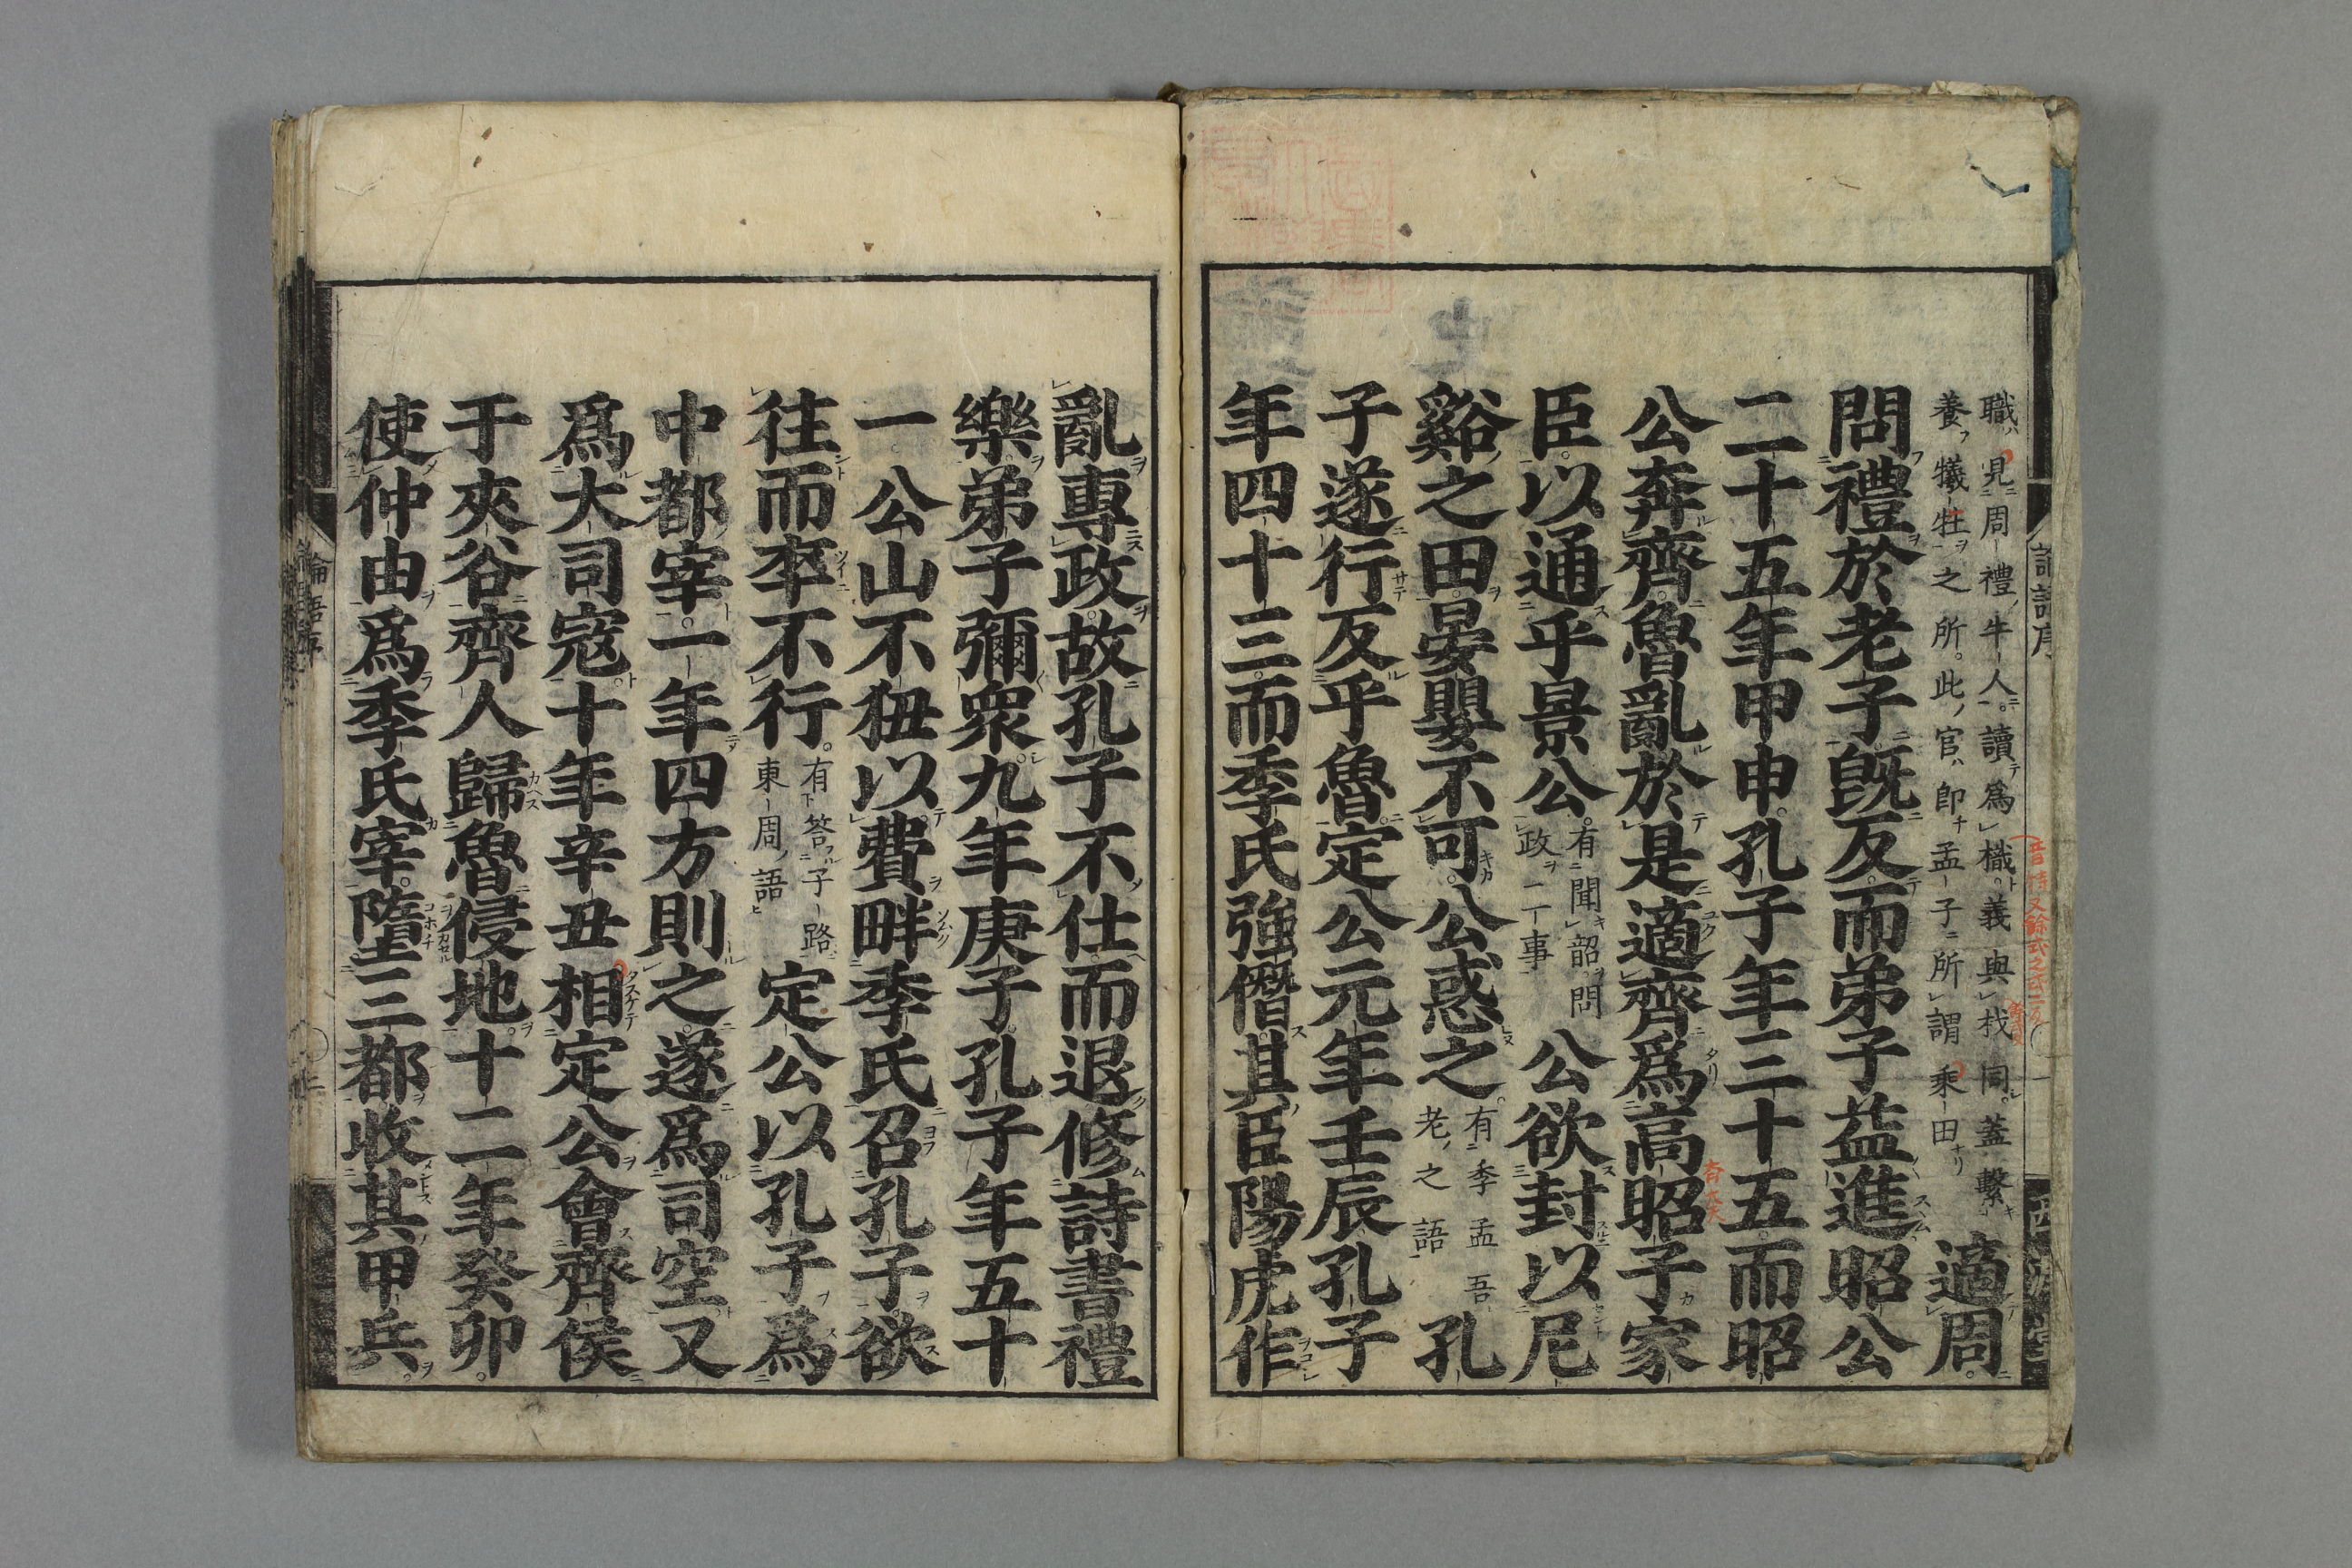 職見周禮牛人讀爲樴義與杙同蓋繫
養犧牲之所此官卽孟子所謂乘田
適周
問禮於老子既反而弟子益進昭公
二十五年甲申孔子年三十五而昭
公奔齊魯亂於是適齊爲高昭子家
臣以通乎景公
有聞韶問
政二事
公欲封以尼
谿之田晏嬰不可公惑之
有季孟吾
老之語
孔
子遂行反乎魯定公元年壬辰孔子
年四十三而季氏強僭其臣陽虎作
亂專政故孔子不仕而退修詩書禮
樂弟子彌衆九年庚子孔子年五十
一公山不狃以費畔季氏召孔子欲
往而卒不行
有答子路
東周語
定公以孔子爲
中都宰一年四方則之遂爲司空又
爲大司寇十年辛丑相定公會齊侯
于夾谷齊人歸魯侵地十二年癸卯
使仲由爲季氏宰墮三都收其甲兵
論語序